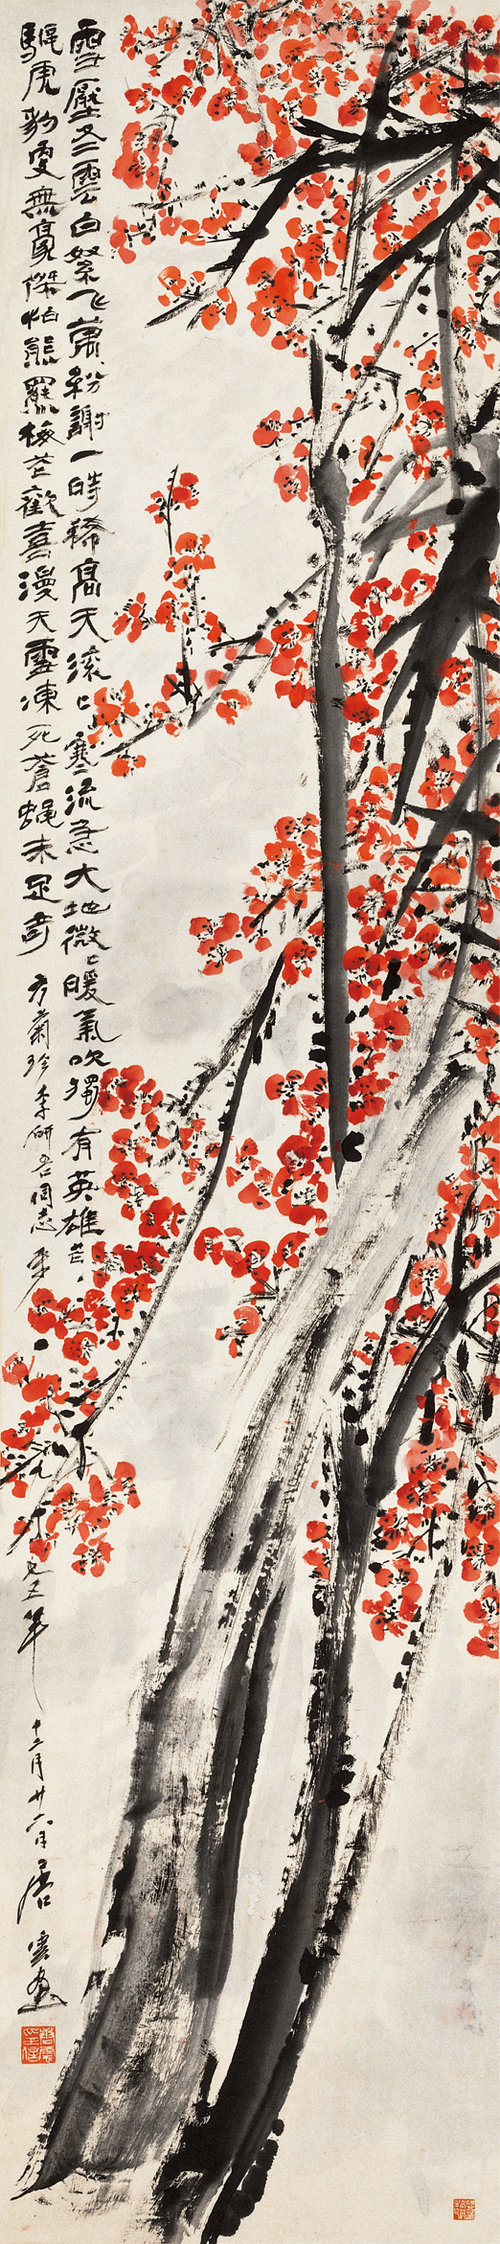 雪壓冬雲白絮飞萬、紛謝一時稀高天滾〻寒流急大地微〻暖氣吹獨有英雄芲、
驅虎豹更無豪傑怕熊羆梅芲歡喜漫天雪凍死蒼蠅未足奇 方菊珍季研吾同志 五年十二月廿六日唐雲畫